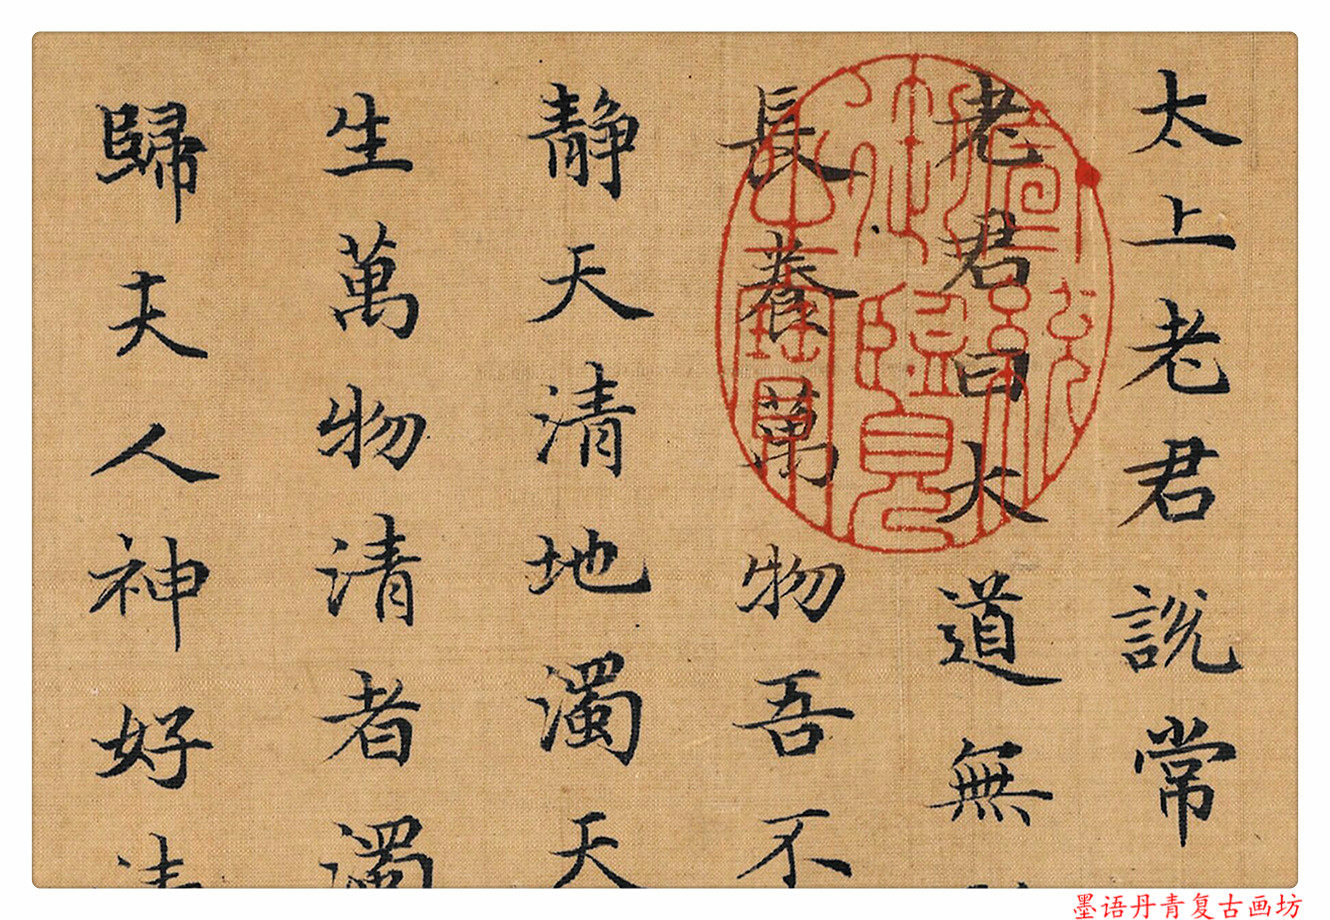 太上老君說常
老君曰大道無
長養萬物吾不
静天清地濁天
生萬物清者濁
歸夫人神好
宣統
御覽
之寶
墨语丹青复古画坊